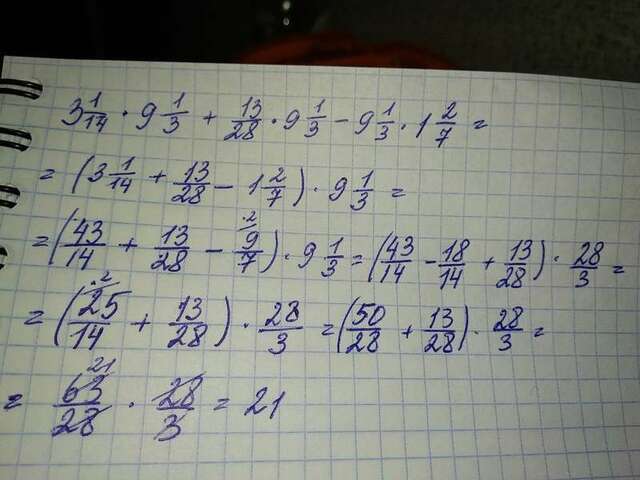 3 1/14 · 9 1/3 + 13/28 · 9 1/3 − 9 1/3 · 1 2/7 =
= (3 1/14 + 13/28 − 1 2/7) · 9 1/3 =
= (43/14 + 13/28 − 9/7 ·2) · 9 1/3 = (43/14 − 18/14 + 13/28) · 28/3 =
= (25/14 ·2 + 13/28) · 28/3 = (50/28 + 13/28) · 28/3 =
= 63/28 21 · 28/3 = 21